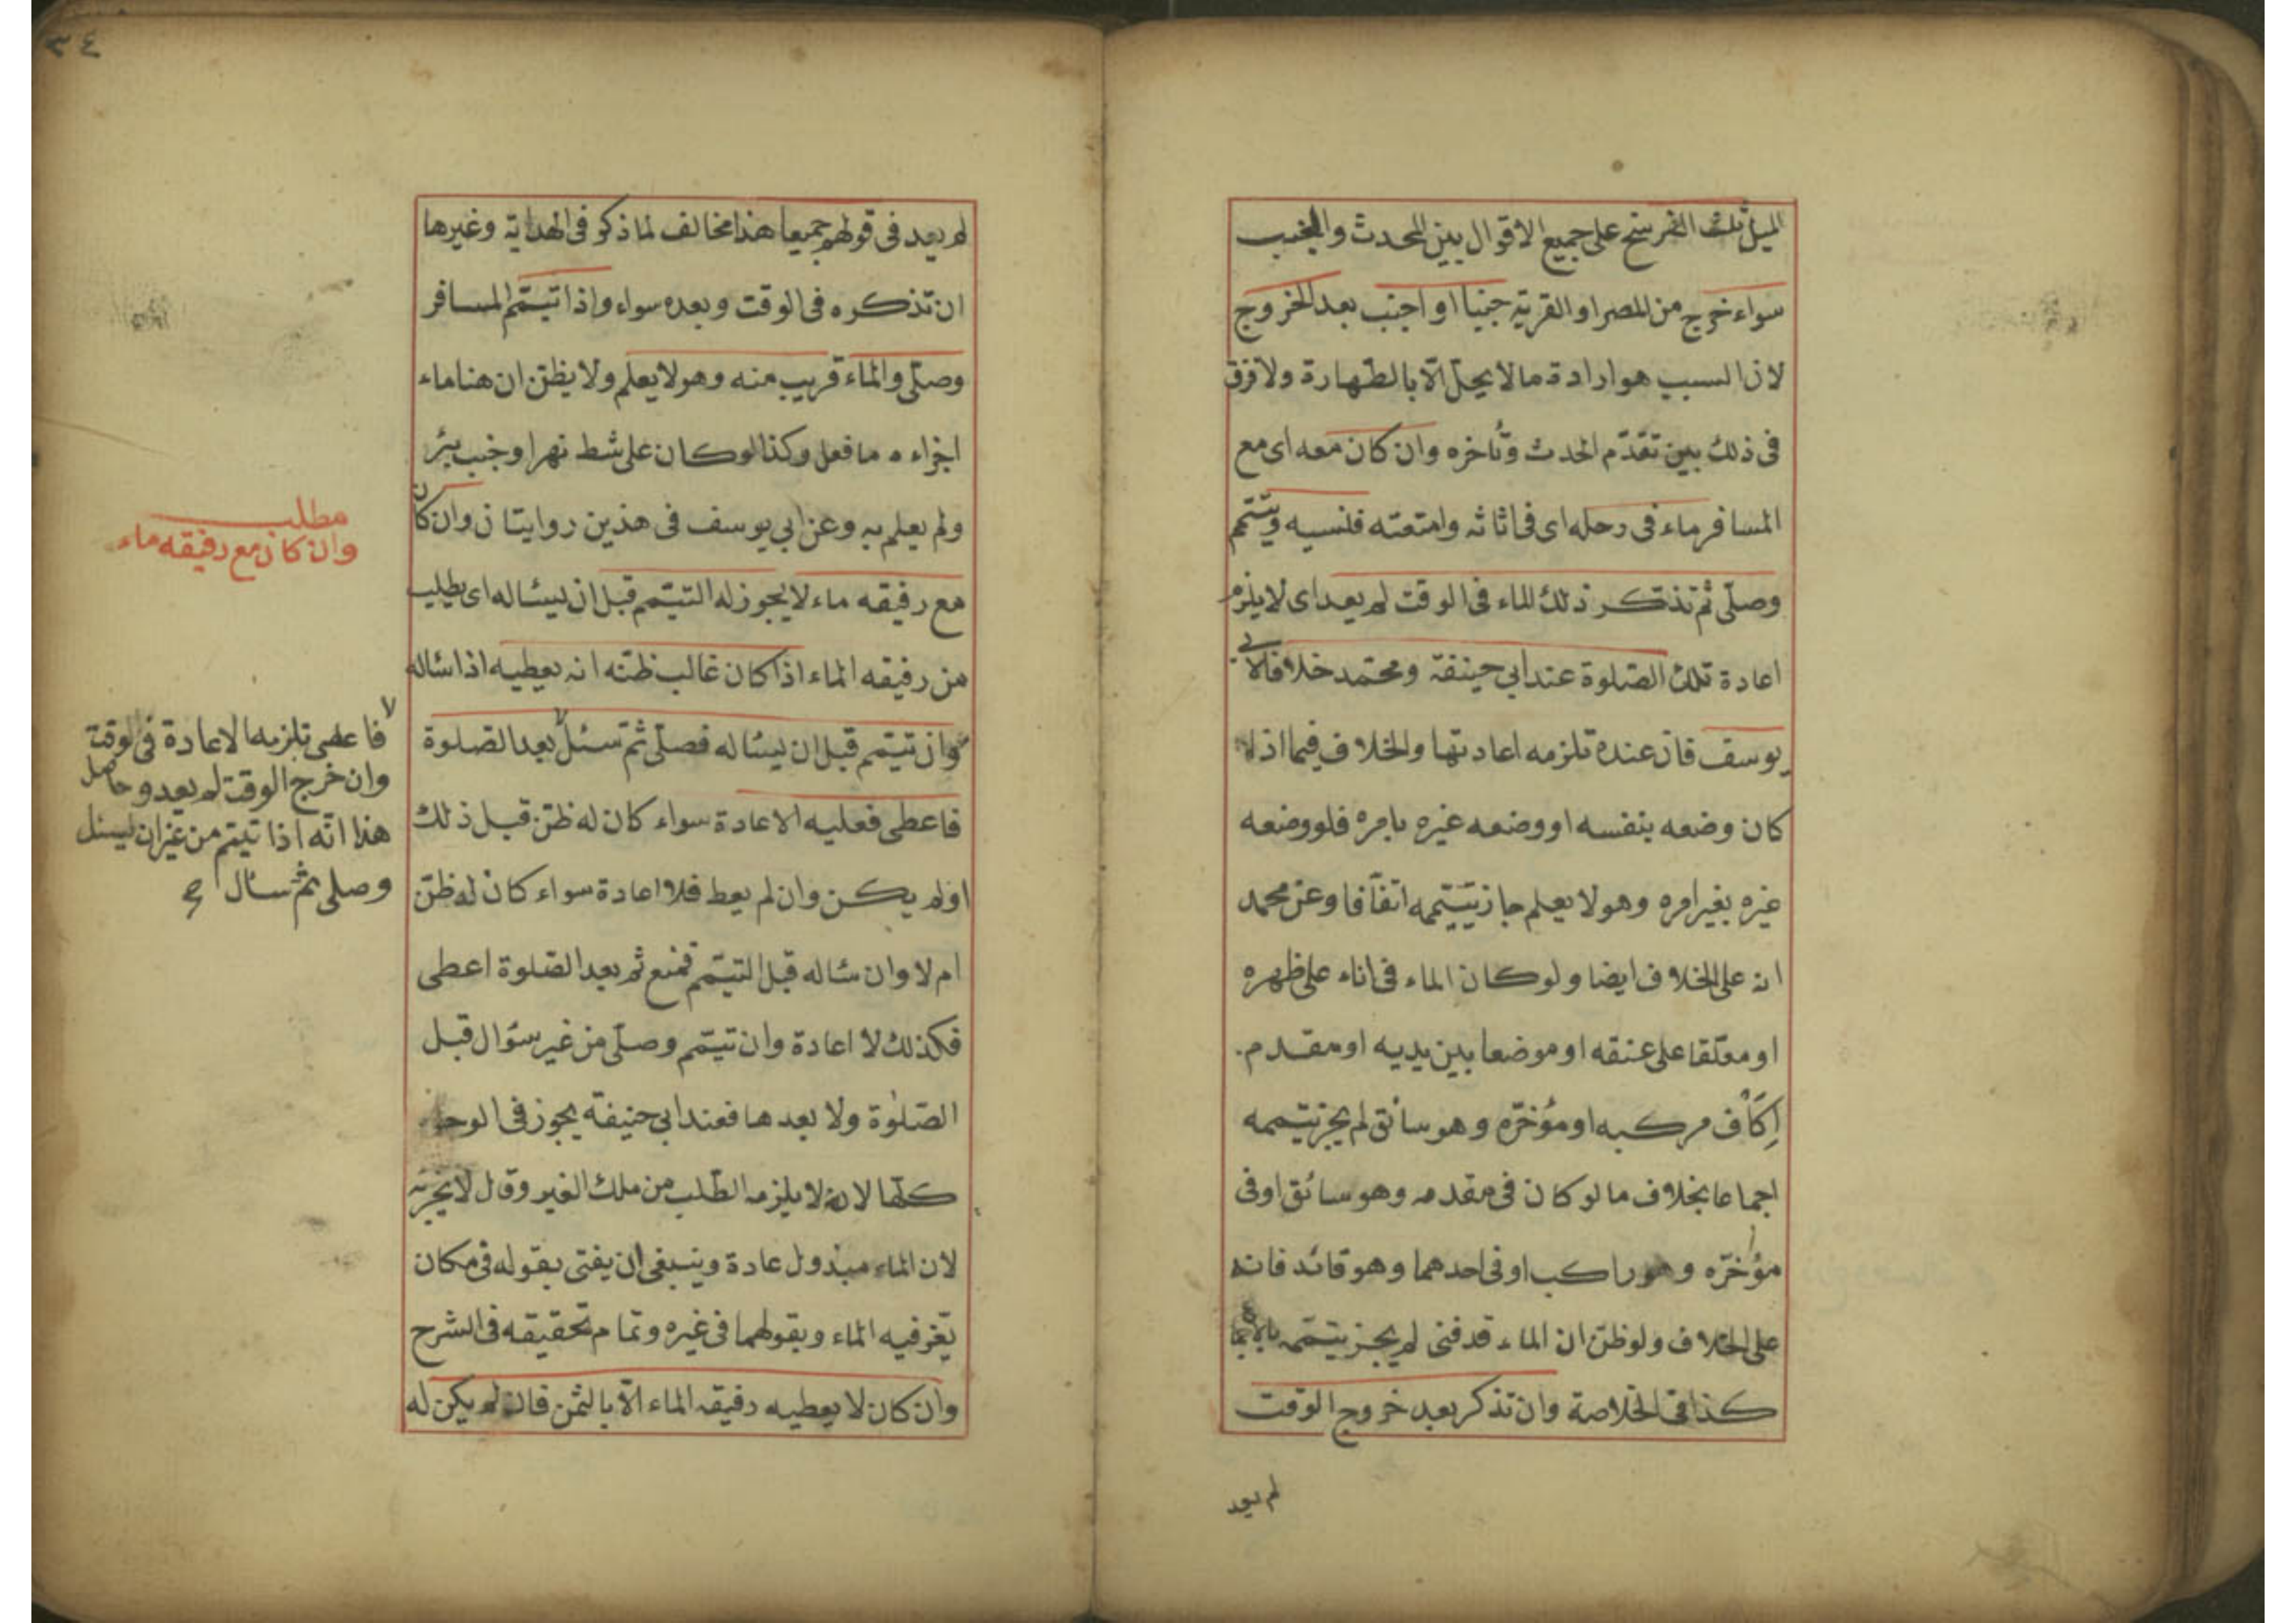 الميل ثلث الفرسخ على جميع الاقوال بين المحدث والجنب
سواء خرج من المصر او القرية جنبا او اجنب بعد الخروج
لان السبب هو ارادة ما لا يحل الّا بالطهارة ولا فرق
فى ذلك بين تقدّم الحدث وتأخره وان كان معه اى مع
المسافر ماء فى رحله اى فى اثاثه وامتعته فنسيه وتيتمّم
وصلّى ثم تذتكر ذلك الماء فى الوقت لم يعد اى لا يلزم
اعادة تلك الصّلوة عند ابى حينفة ومحتمد خلافا لابى
يوسف فان عنده تلزمه اعادتها والخلاف فيما اذا
كان وضعه بنفسه او وضعه غيره بامره فلو وضعه
غيره بغير امره وهو لا يعلم جاز تيتممه اتفّاقا وعن محمد
انه على الخلاف ايضا ولو كان الماء فى اناء على ظهره
او معلّقا على عنقه او موضعا بين يديه او مقدم
إكَاْف مركبه او مؤخرّه وهو سائق لم يجز تيتممه
اجماعا بخلاف ما لو كان فى مقدمه وهو سائق او فى
مؤخرّه وهو راكب او فى احدهما وهو قائد فانه
على الخلاف ولو ظنّ ان الماء قد فنى لم يجز تيتممه بالاجماع
كذا فى الخلاصة وان تذكر بعد خروج الوقت
لم يعد
٣٤
لم يعد فى قولهم جميعا هذا مخالف لما ذكر فى الهداية وغيرها
ان تذكره فى الوقت وبعده سواء واذا تيتمّم المسافر
وصلّى والماء قريب منه وهو لا يعلم ولا يظنّ ان هنا ماء
اجزاءه ما فعل وكذا لو كان على شط نهر او جنب بئر
ولم يعلم به وعن ابي يوسف فى هذين روايتان وان كان
مع رفيقه ماء لا يجوز له التيتمّم قبل ان يسئاله اى يطلب
من رفيقه الماء اذا كان غالب ظنّه انه يعطيه اذا سئاله
وان تيتمم قبل ان يسئاله فصلّى ثمّ سئل بعد الصلوة
فاعطى فعليه الاعادة سواء كان له ظنّ قبل ذلك
او لم يكن وان لم يعط فلا اعادة سواء كان له ظنّ
ام لا وان سئاله قبل التيتمّم فمنع ثم بعد الصّلوة اعطى
فكذلك لا اعادة وان تيتمّم وصلّى من غير سؤال قبل
الصّلوة ولا بعدها فعند ابى حنيفة يجوز فى الوجوه
كلّها لانه لا يلزمه الطّلب من ملك الغير وقال لا يجزئه
لان الماء مبذول عادة وينبغى ان يفتى بقوله فى مكان
يعّز فيه الماء وبقولهما فى غيره وتمام تحقيقه فى الشرح
وان كان لا يعطيه رفيقه الماء الّا بالثمن فان لم يكن له
مطلب
وان كان مع رفيقه ماء
فاعطى تلزمه الاعادة فى الوقت
وان خرج الوقت لم يعد وحاصل
هذا انّه اذا تيتم من غير ان يسئل
وصلى ثم سئال